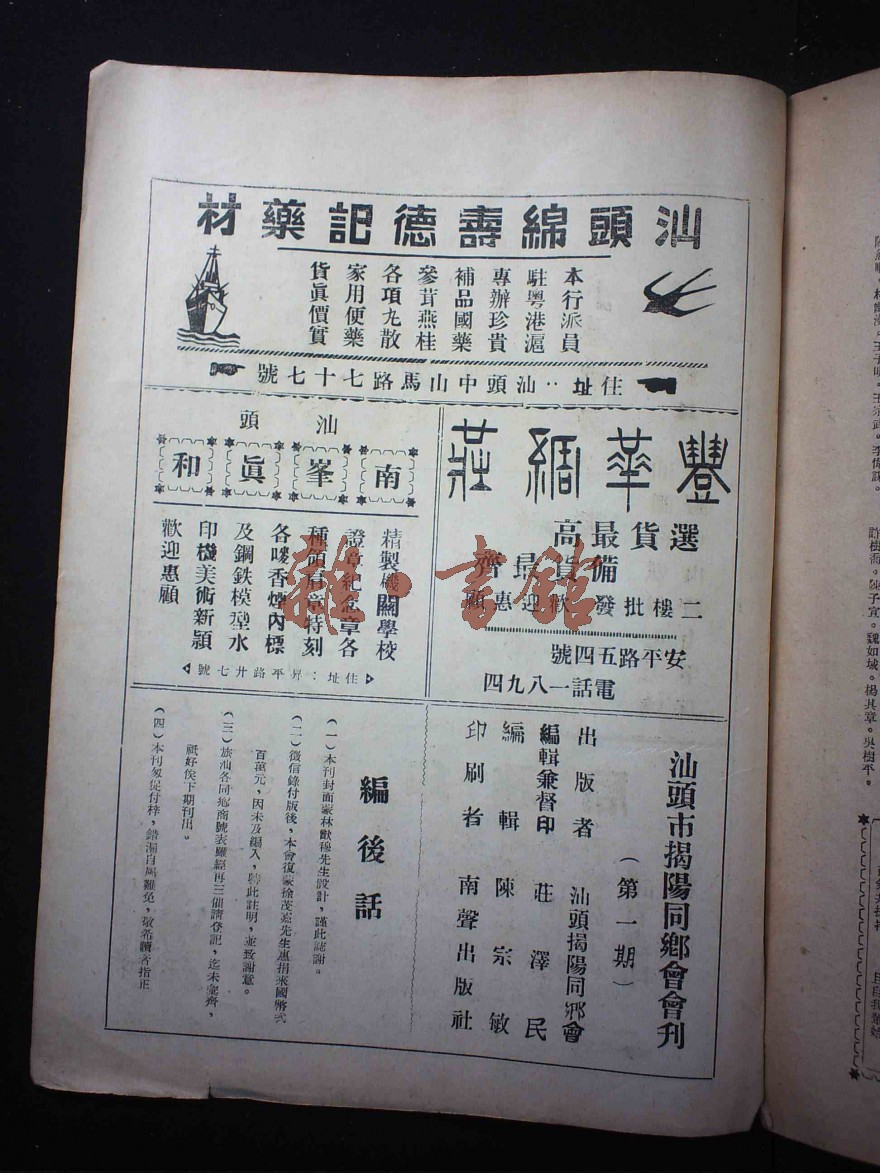 汕頭綿壽德記藥材
本行派員
駐粵港滬
專辦珍貴
補品國藥
參茸燕桂
各項丸散
家用便藥
貨眞價實
住址：汕頭中山馬路七十七號
豐華綢莊
選貨最高
備貨最齊
二樓批發歡迎惠顧
安平路五四號
電話一八九四
汕頭
南峯眞和
精製機關學校
證章紀念章各
種領肩章特刻
各嘜香煙內標
及鋼鉄模型水
印機美術新頴
歡迎惠顧
住址：昇平路廿七號
汕頭市揭陽同鄉會會刊
（第一期）
出版者 汕頭揭陽同鄉會
編輯兼督印 莊澤民
編輯 陳宗敏
印刷者 南聲出版社
編後話
（一）本刊封面蒙林獻穆先生設計，謹此誌謝。
（二）徵信錄付版後，本會復蒙徐茂燕先生惠捐來國幣弍
百萬元，因未及編入，特此註明，並致謝意。
（三）旅汕各同鄉商號表雖經再三催請登記，迄未彙齊，
祇好俟下期刊出。
（四）本刊匆促付梓，錯漏自屬難免，敬希讀者指正
雜·書館
許樹喬。陳子宜。魏如城。楊其章。吳樹平。